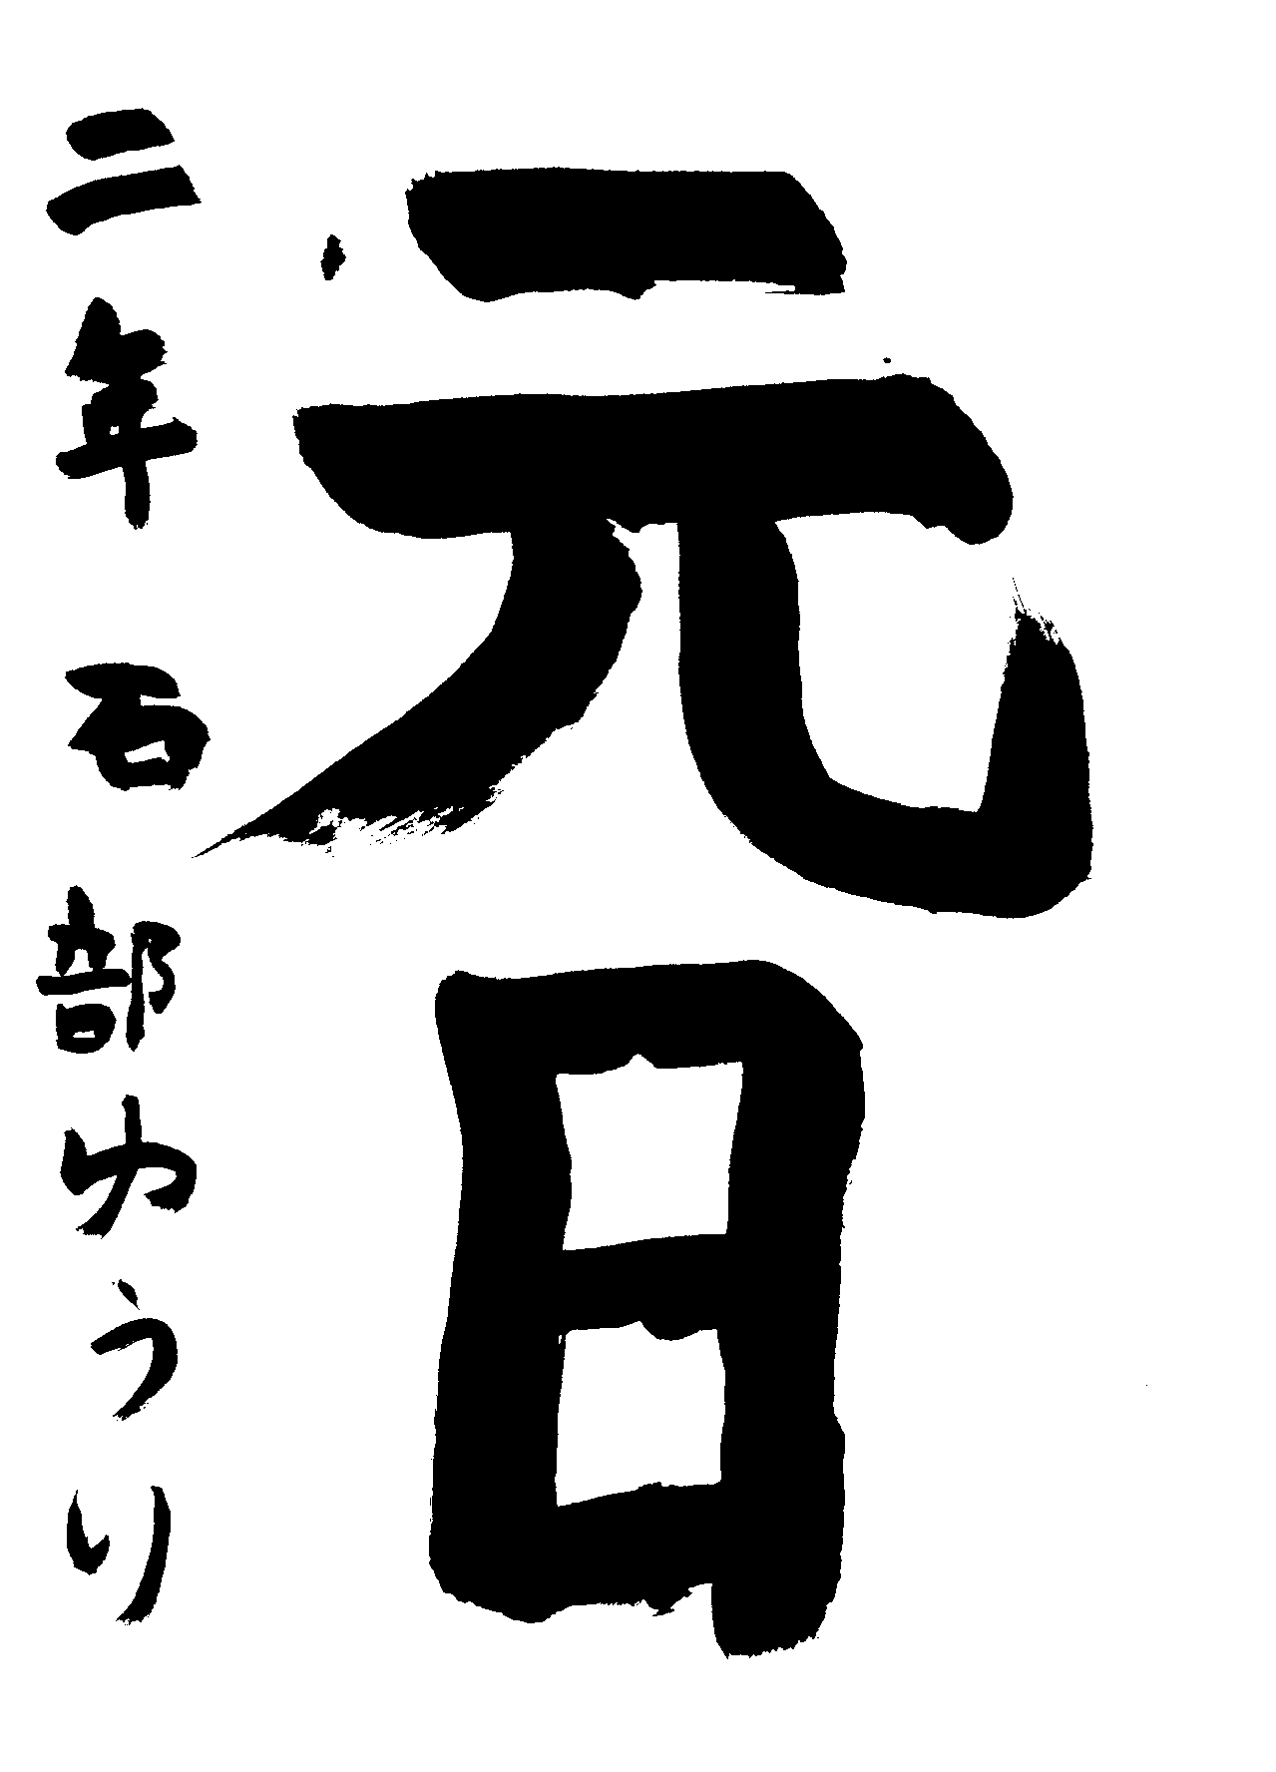 元日
二年 石部ゆうり